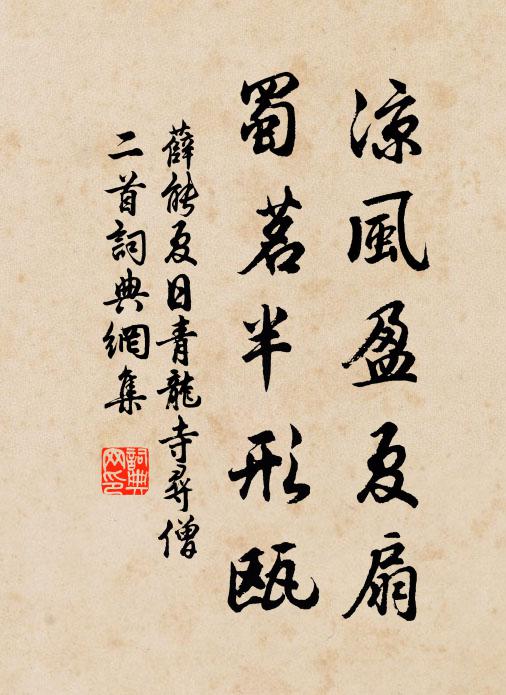 涼風盈夏扇
蜀茗半形甌
薛能夏日青龍寺尋僧
二首詞典網集
詞典
网印